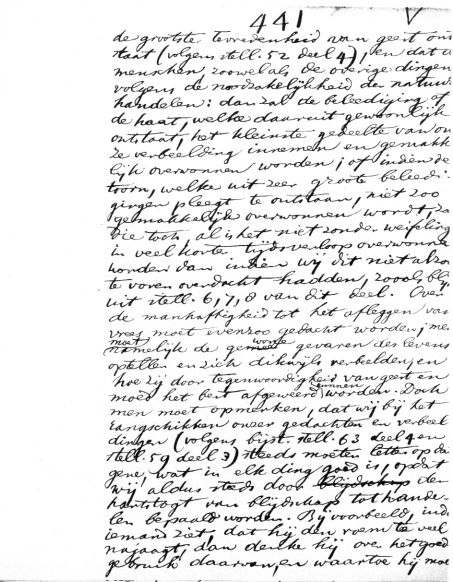 441
de grootste tevredenheid van geest ont
staat (volgens stell. 52 deel 4), en dat de
menschen, zoowel als de overige dingen
volgens de noodzakelijkheid der natuur
handelen: dan zal de beleediging of
de haat, welke daaruit gewoonlijk
ontstaat, het kleinste gedeelte van on
ze verbeelding innemen en gemakke
lijk overwonnen worden; of indien de
toorn, welke uit zeer groote beleedi-
gingen pleegt te ontstaan, niet zoo
gemakkelijk overwonnen wordt, za
die toch, al is het niet zonder weifeling
in veel korte tijdsverloop overwonne
worden dan indien wij dit niet alzoo
te voren overdacht hadden, zooals blij
uit stell. 6, 7, 8 van dit deel. Over
de manhaftigheid tot het afleggen van
vrees moet evenzoo gedacht worden; men
moet
namelijk de gemeene gevaren des levens
optellen en zich dikwijls verbeelden, en
hoe zij door tegenwoordigheid van geest en
moed het best afgeweerd kunnen worden. Doch
men moet opmerken, dat wij bij het
rangschikken onzer gedachten en verbeel
dingen (volgens bijst. stell. 63 deel 4 en
stell. 59 deel 3) steeds moeten letten op da
gene, wat in elk ding goed is, opdat
wij aldus steds door blijdschap den
hartstogt van blijdschap tot hande-
len bepaald worden. Bij voorbeeld, indi
iemand ziet, dat hij den roem te veel
najaagt, dan denke hij over het goed
gebruik daarvan, en waartoe hij moe